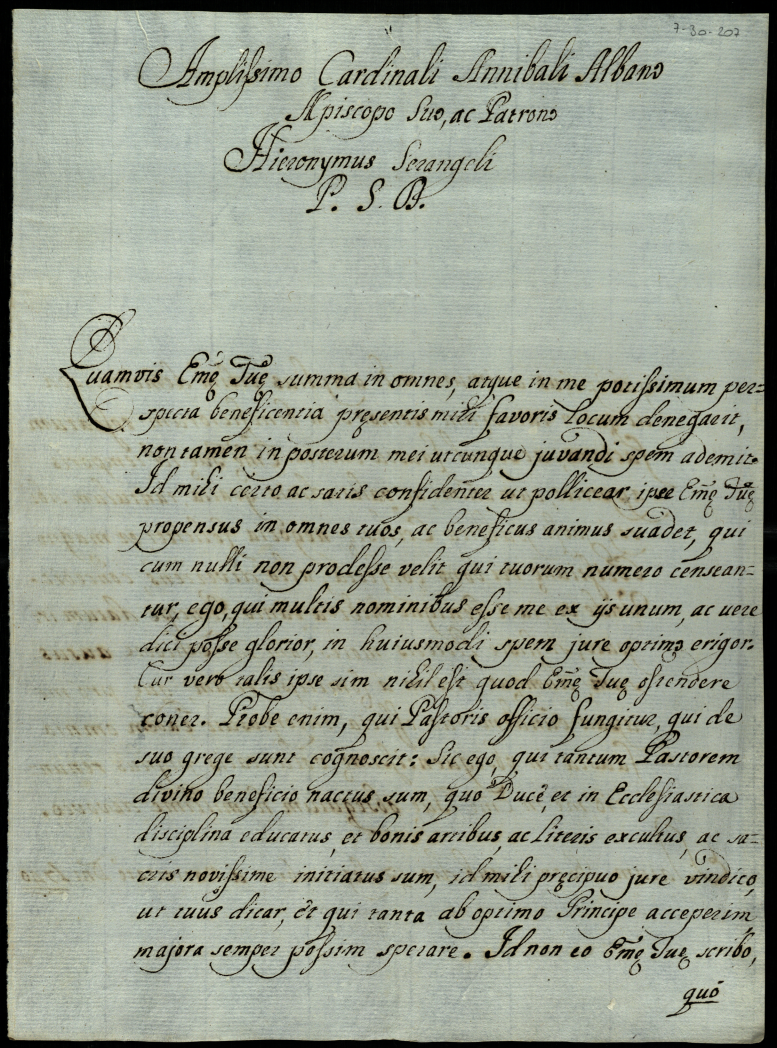 7-30-207
Amplissimo Cardinali Annibali Albano
Episcopo Suo, ac Patrono
Hieronymus Serangeli
P. S. D.
Quamvis Em̃ę Tuę summa in omnes, atque in me potissimum per=
specta beneficentia pręsentis mihi favoris locum denegarit,
non tamen in posterum mei utcunque juvandi spem ademit.
Id mihi certo ac satis confidenter ut pollicear, ipse Em̃ę Tuę
propensus in omnes tuos, ac beneficus animus suadet, qui
cum nulli non prodesse velit qui tuorum numero censean=
tur, ego, qui multis nominibus esse me ex ijs unum, ac vere
dici posse glorior, in huiusmodi spem jure optimo erigor.
Cur vero talis ipse sim nihil est quod Em̃ę Tuę ostendere
coner. Probe enim, qui Pastoris officio fungitur, qui de
suo grege sunt cognoscit: Sic ego, qui tantum Pastorem
divino beneficio nactus sum, quo Duce, et in Ecclesiastica
disciplina educatus, et bonis artibus, ac literis excultus, ac sa=
cris novissime initiatus sum, id mihi pręcipuo jure vindico,
ut tuus dicar, et qui tanta ab optimo Principe acceperim
majora semper possim sperare. Id non eo Em̃ę Tuę scribo,
quó